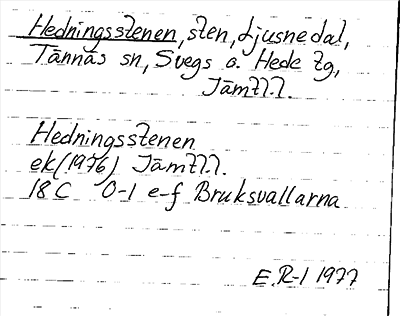 Hedningsstenen, sten, Ljusnedal,
Tännäs sn, Svegs o. Hede tg,
Jämtl.l.
Hedningsstenen
ek (1976) Jämtl.l.
18 C 0-1 e-f Bruksvallarna
E.R-l 1977